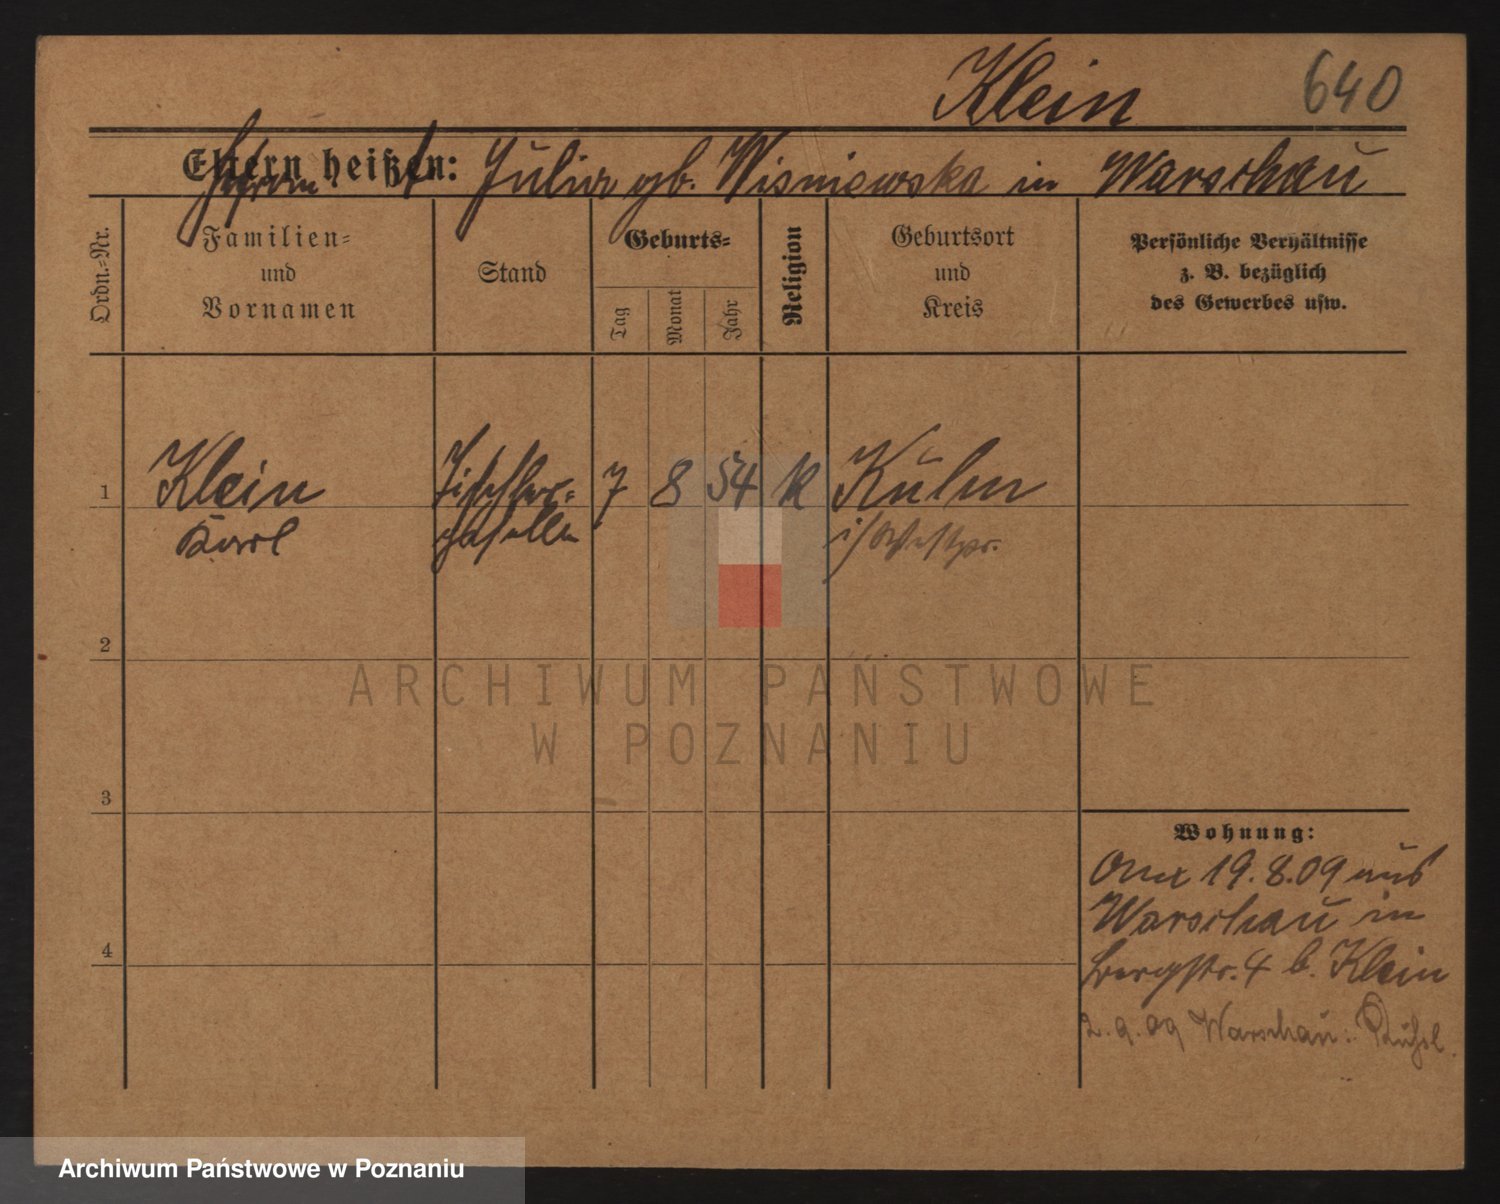 Klein 640
Eltern heißen: † Julia gb. Wisniewska in Warschau
Ordn.-Nr.
Familien-
und
Vornamen
Stand
Geburts-
Tag
Monat
Jahr
Religion
Geburtsort
und
Kreis
Persönliche Verhältnisse
z. B. bezüglich
des Gewerbes usw.
1 Klein Tischler- 7 8 54 k Kulm
Karl geselle i/Westpr.
2
ARCHIWUM PAŃSTWOWE
W POZNANIU
3
Wohnung:
19.8.09 aus
Warschau in
Bergstr. 4 b. Klein
4
2.9.09 Warschau
Archiwum Państwowe w Poznaniu